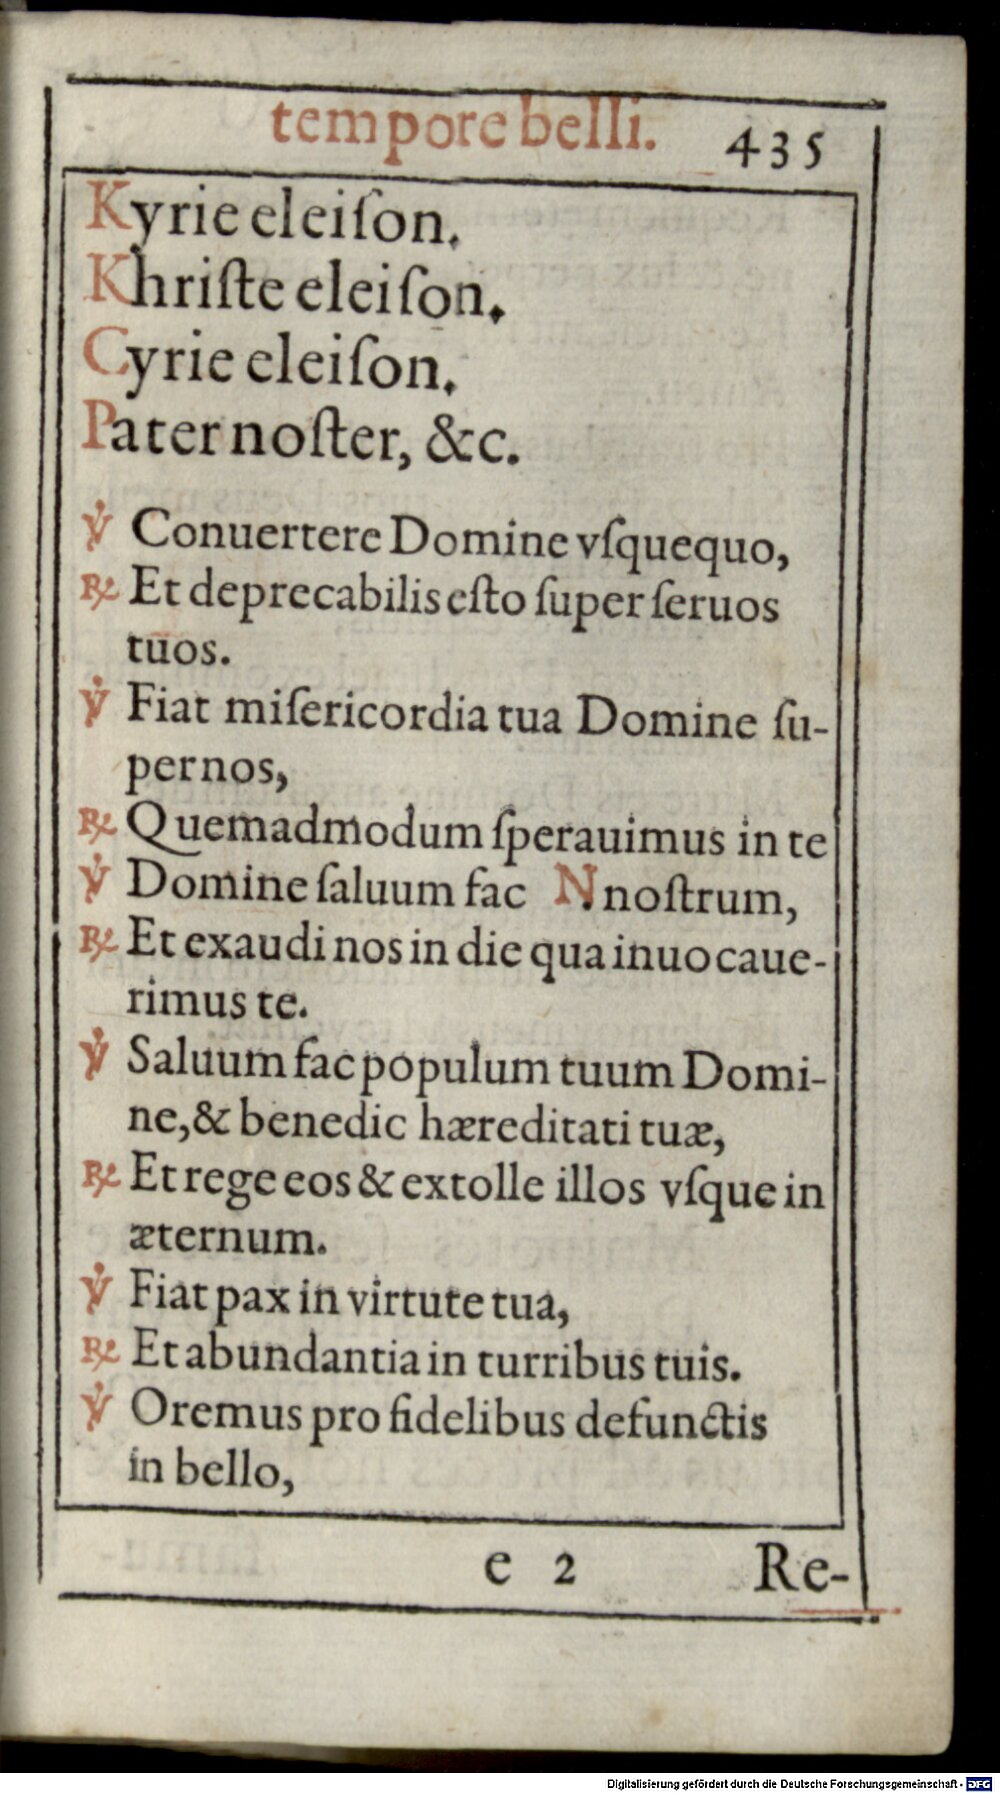 tempore belli. 435
Kyrie eleiſon.
Khriſte eleiſon.
Cyrie eleiſon.
Pater noſter, &c.
℣ Conuertere Domine vſquequo,
℟ Et deprecabilis eſto ſuper ſeruos
tuos.
℣ Fiat miſericordia tua Domine ſu-
per nos,
℟ Quemadmodum ſperauimus in te
℣ Domine ſaluum fac N. noſtrum,
℟ Et exaudi nos in die qua inuocaue-
rimus te.
℣ Saluum fac populum tuum Domi-
ne, & benedic hæreditati tuæ,
℟ Et rege eos & extolle illos vſque in
æternum.
℣ Fiat pax in virtute tua,
℟ Et abundantia in turribus tuis.
℣ Oremus pro fidelibus defunctis
in bello,
e 2 Re-
Digitalisierung gefördert durch die Deutsche Forschungsgemeinschaft - DFG